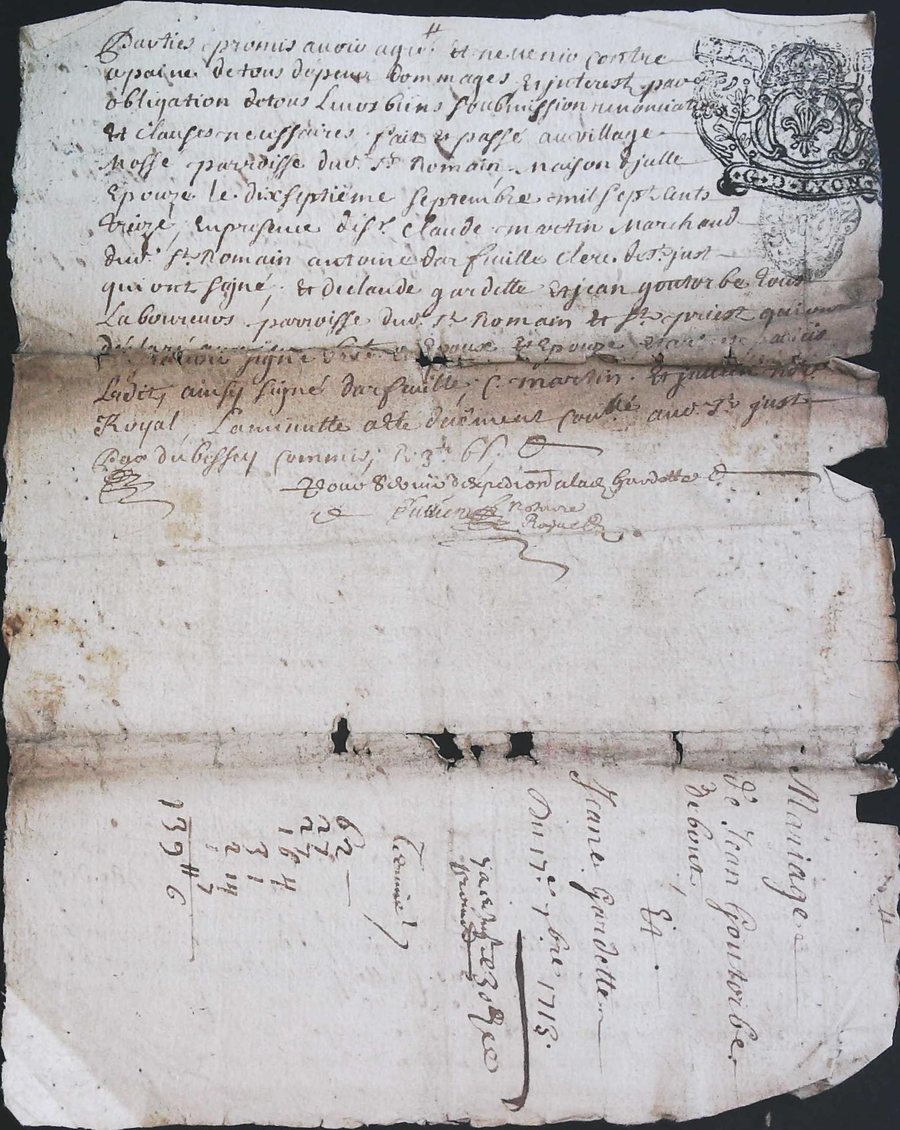 Parties promis avoir agré. et ne venir contre
a paine de tous dépens dommages et interest par
obligation de tous leurs biens soubmission renonciat
et clauses necessaires fait et passé au village
Nosse parroisse dud. St. Romain maison de
Epouze le dixseptième septembre mil sept cents
treize, en presence de Sr. Claude Martin Marchand
dud. St. Romain antoine darfeuille clerc de St. just
qui ont signé, et de claude gardette et jean goutorbe tous
Laboureurs parroisse dud. St. Romain et St. priest qui ont
signé Epoux et Epouze
Ledit, ainsy signé darfeuille, C. martin. et jullien no.re
Royal La minutte a été duëment au St. just
dubessey commis,
Pour dexpedion a lad. Gardette
Jullien Notaire
Royal
G. D. LYON
Mariage
de Jean Goutorbe
debout,
Et
Jeanne Gardette
Du 17e. 7bre 1713.
62
27
27
16 4
3 1
2 14
1 7
139 6